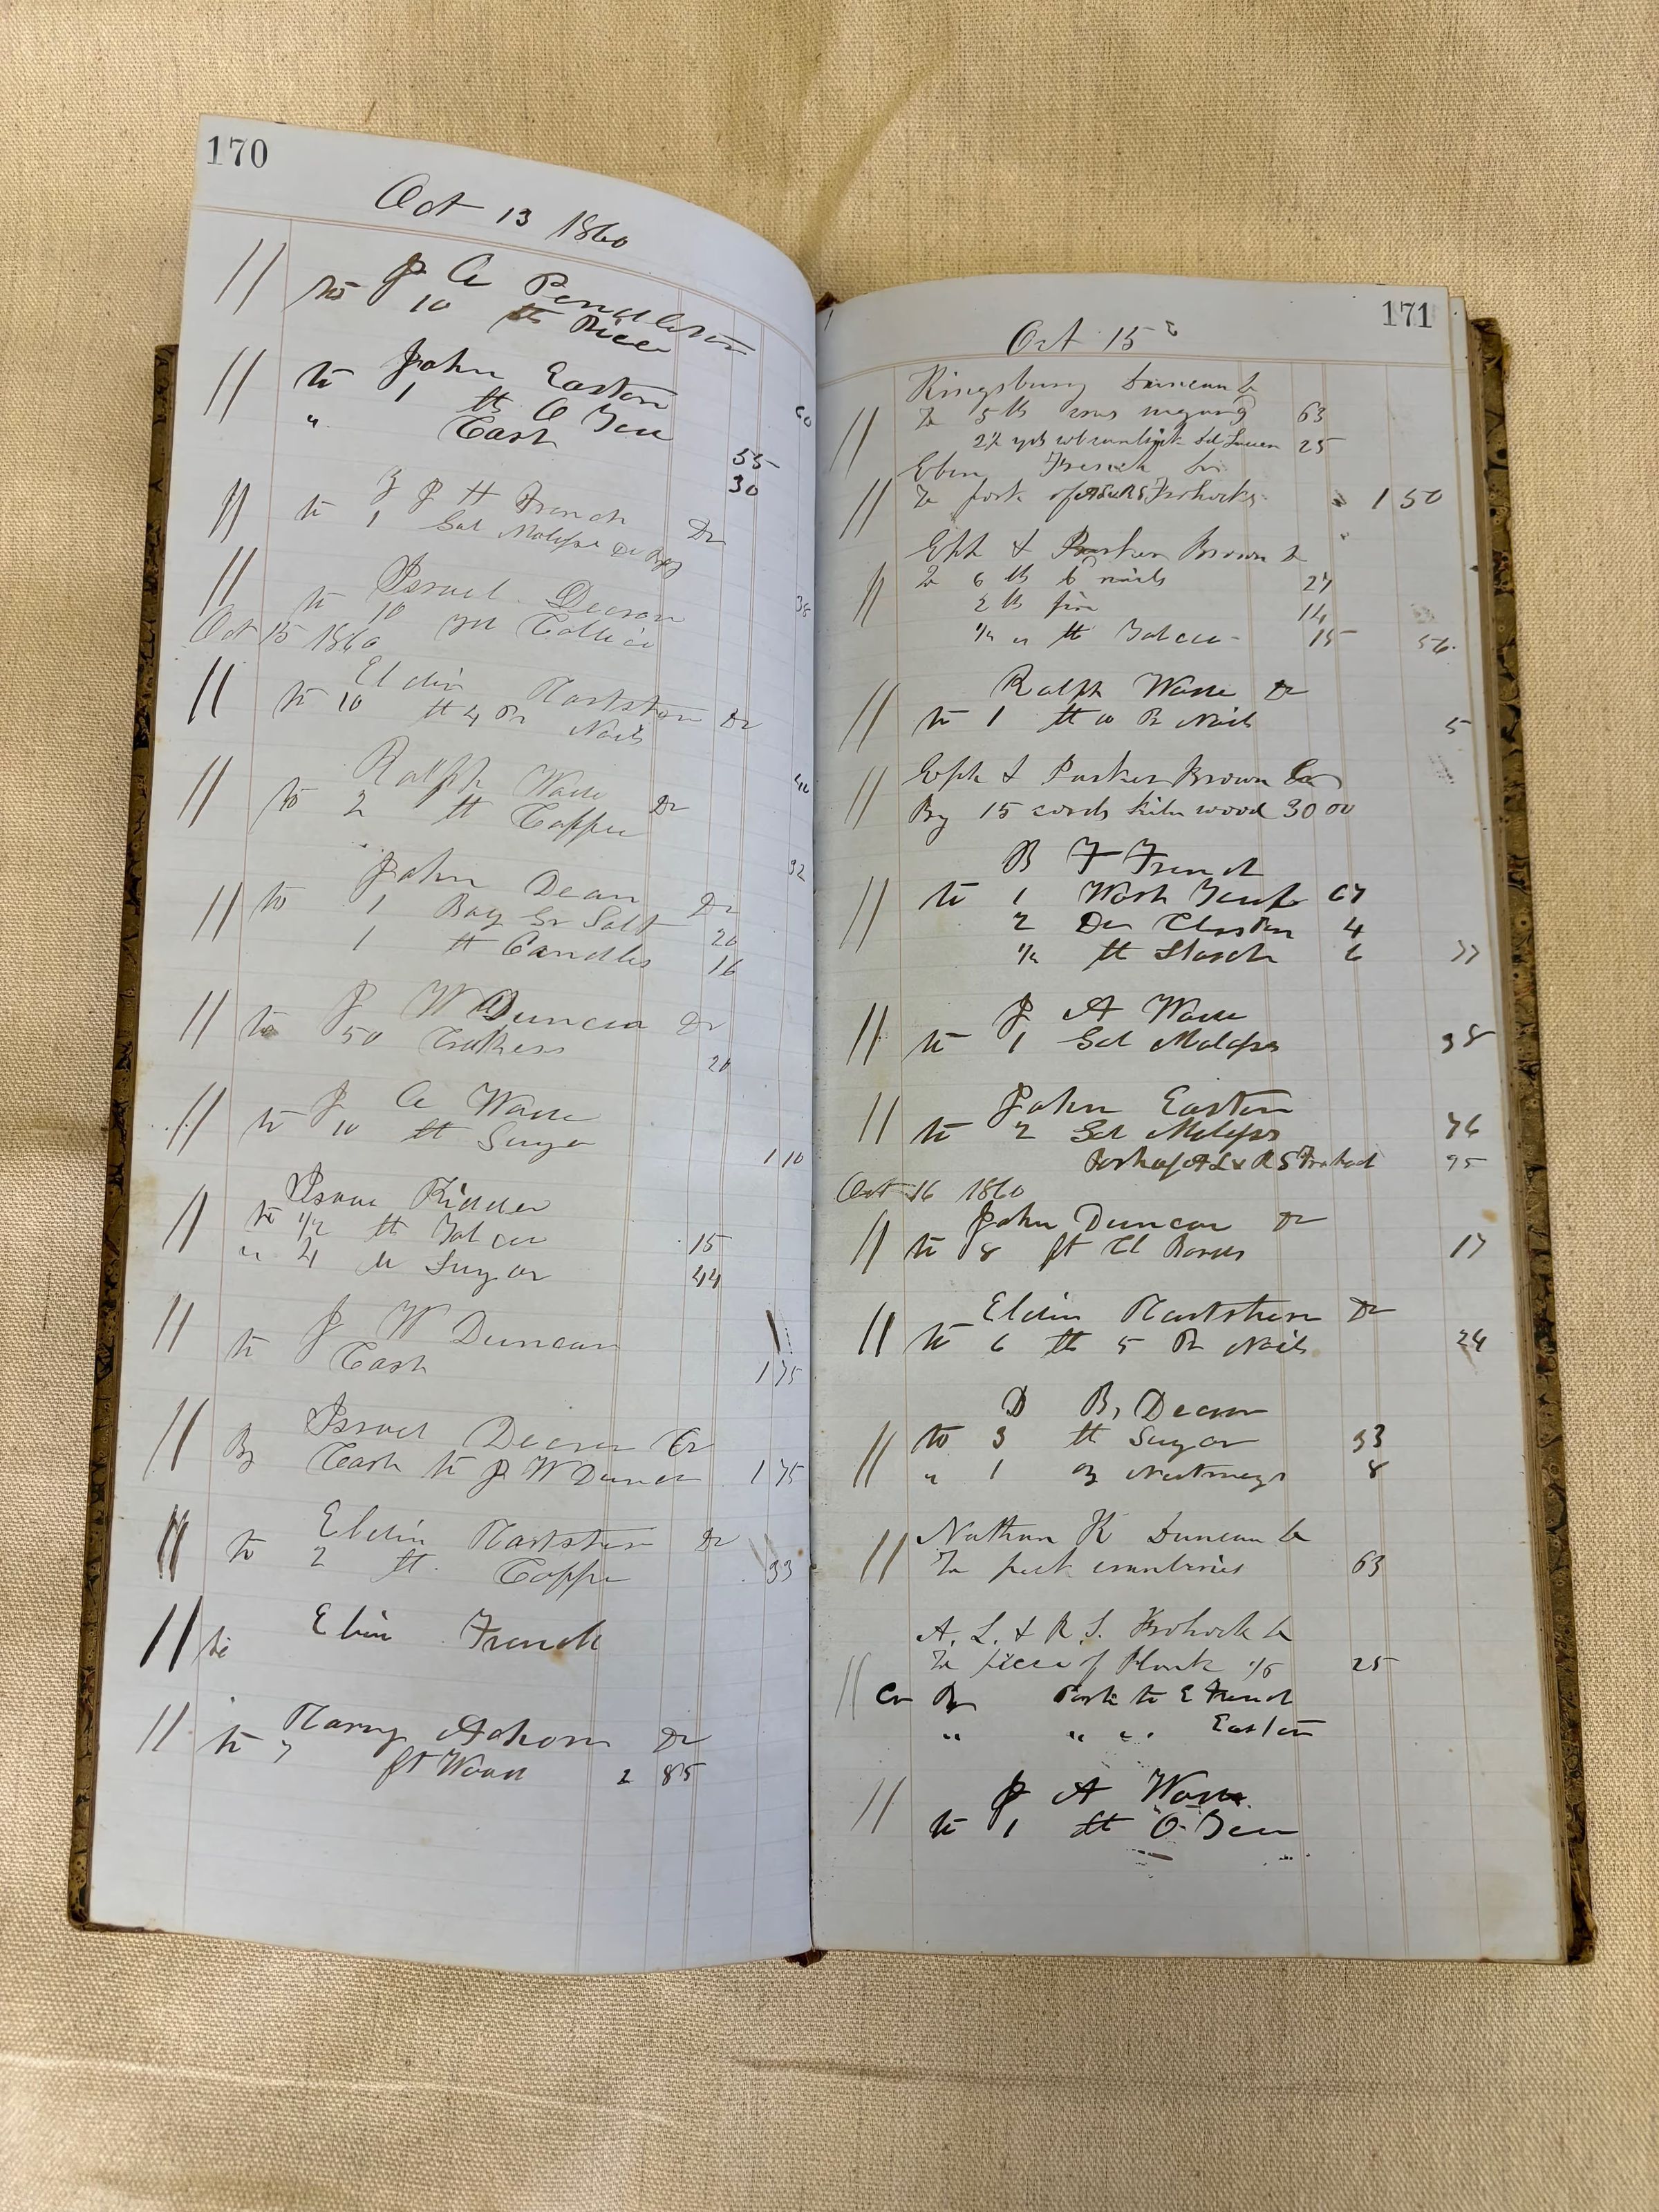 170
Oct 13 1860
// J A Pendleton
to 10 lb Rice 60
// John Easton
to 1 lb O Tea 55
" Cash 30
// J H French Dr
to 1 Gal Molasses 38
// Israel Decrow
to 10 M
Oct 15 1860
// Eldin Dr
to 10 lb 4 Pn Nails 40
// Ralph Wade Dr
to 2 lb Coffee 32
// John Dean Dr
to 1 Bag Gr Salt 20
1 lb Candles 16
// J W Duncan Dr
to 50 Crakers 20
// J A Wade
to 10 lb Sugar 1 10
// Isaac Kidder
to 1/2 lb Tobacco 15
" 4 lb Sugar 44
// J W Duncan
to Cash 1 75
// Israel Decrow Cr
By Cash to J W Duncan 1 75
// Eldin Dr
to 2 lb Coffe 33
// to Ebin French
// Harry Achorn Dr
to 7 ft Wood 2 85
171
Oct 15
Kingsbury Duncan Dr
// To 5 lb 63
25
Eben French Dr
// To pork of A L & R S Frohock 1 50
Eph & Parker Brown Dr
// To 6 lb 6 nails 27
2 lb 14
1/2 lb Tobacco 15 56
// Ralph Wade Dr
to 1 lb 10 Pn Nails 5
// Eph & Parker Brown Cr
By 15 cords kiln wood 30 00
B F French
// to 1 Wash 67
2 4
1/2 lb Starch 6 77
// J A Wade
to 1 Gal Molasses 38
// John Easton
to 2 Gal Molasses 76
Pork of A L & R S Frohock 95
Oct 16 1860
// John Duncan Dr
to 8 ft Cl Bords 17
// Eldin Dr
to 6 lb 5 Pn Nails 24
D B, Decrow
// to 3 lb Sugar 33
" 1 oz Nutmegs 8
// Nathan K Duncan Dr
To peck cranberries 63
A. L. & R. S. Frohock Dr
To piece of Plank 25
// Cr By Pork to E French
" " " Easton
// J A Wade
to 1 lb O Tea